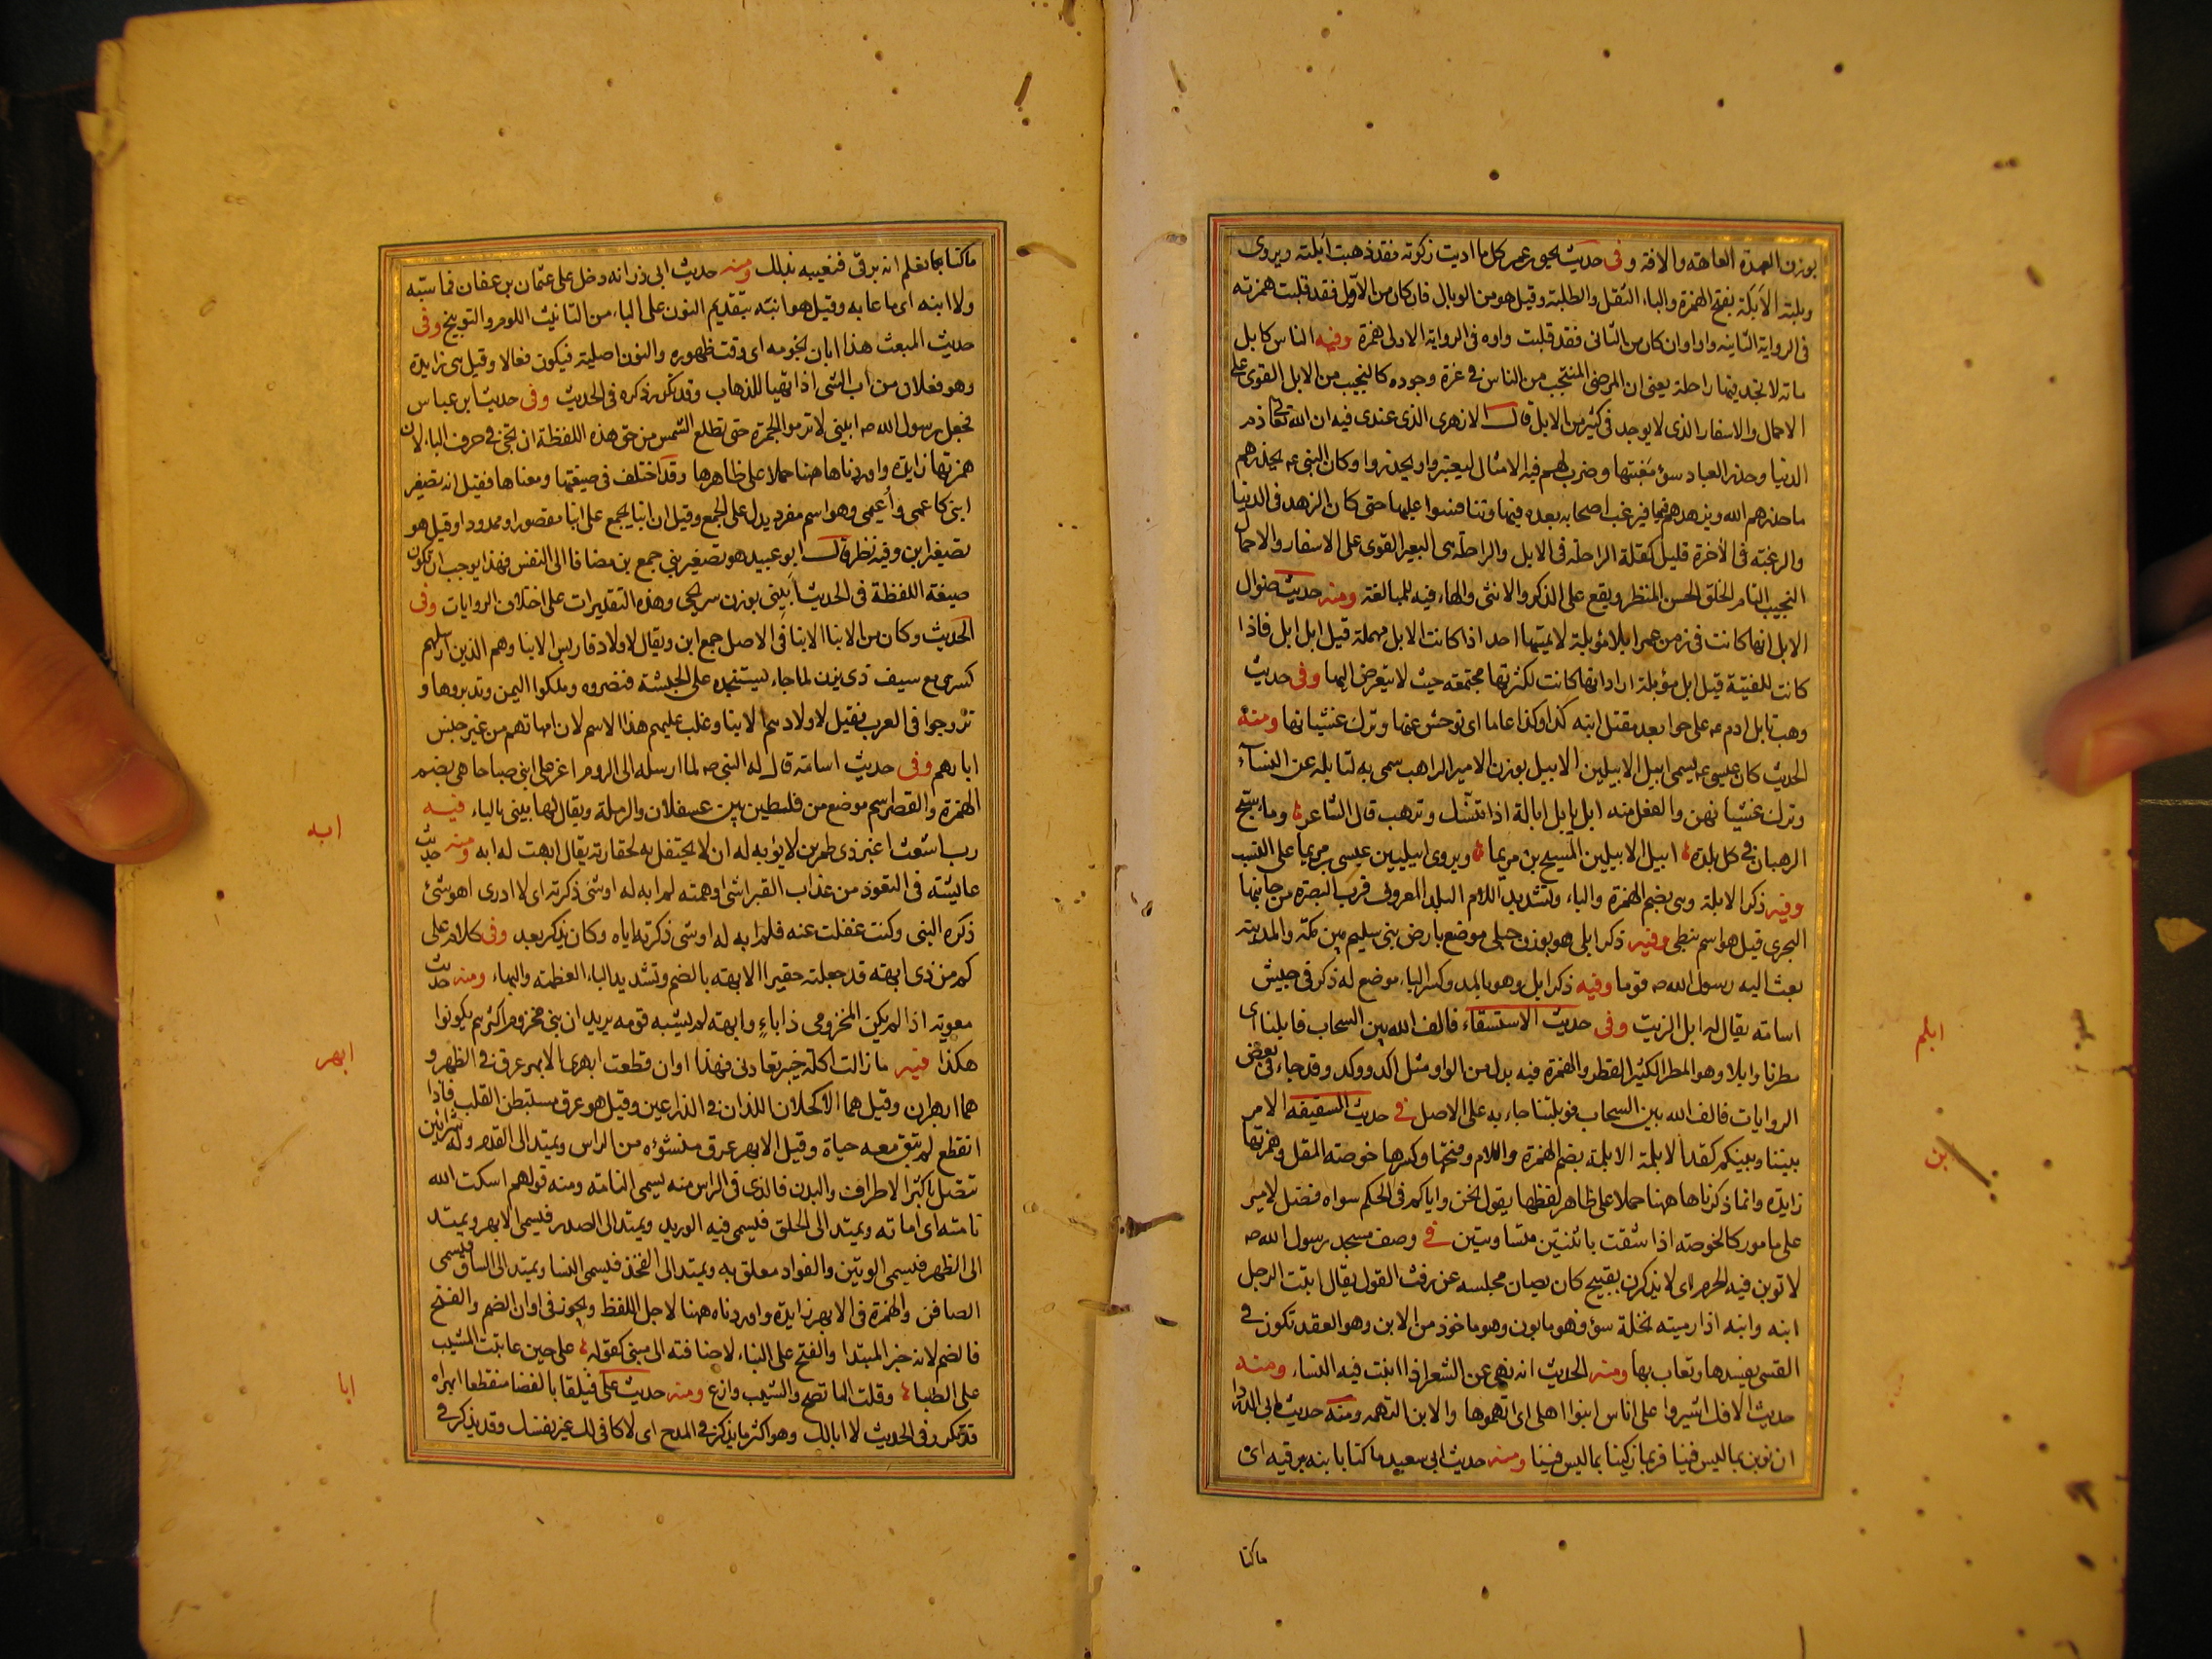 بوزن العهدة العاهة والافة وفى حديث يحيى بن عمر كل ما اديت زكوته فقد ذهبت ابلته ويروى
وبلته الابلة بفتح الهمزة والباء الثقل والطلبة وقيل هو من الوبال فان كان من الاول فقد قلبت همزته
فى الرواية الثانيه واوا وان كان من الثانى فقد قلبت واوه فى الرواية الاولى همزة وفيه الناس كابل
ماته لا تجد فيها راحلة يعنى ان المرضى المنتجب من الناس فى عزة وجوده كالنجيب من الابل القوى على
الاحمال والاسفار الذى لا يوجد فى كثير من الابل قال الازهرى الذى عندى فيه ان الله تعا ذم
الدنيا وحذر العباد سؤ مغبتها وضرب لهم فيه الامثال ليعتبروا ويحذروا وكان النبى عه يحذرهم
ما حذرهم الله ويزهدهم فيها فرغب اصحابه بعده فيها وتنافسوا عليها حتى كان الزهد فى الدنيا
والرغبة فى الاخرة قليل كقلة الراحلة فى الابل والراحلة هى البعير القوى على الاسفار والاحمال
النجيب التام الخلق الحسن المنظر ويقع على الذكر والانثى والهاء فيه للمبالغة ومنه حديث ضوال
الابل انها كانت فى زمن عمر ابلا مؤبلة لا يمسها احد اذا كانت الابل مهملة قيل ابل ابل فاذا
كانت للقنية قيل ابل مؤبلة اراد انها كانت لكثرتها مجتمعة حيث لا يتعرض اليها وفى حديث
وهب تابل ادم عه على حوا بعد مقتل ابنه كذا وكذا عاما اى توحش عنها وترك غشيانها ومنه
الحديث كان عيسى عه يسمى ابيل الابيلين الابيل بوزن الامير الراهب سمى به لتابله عن النساء
وترك غشيانهن والفعل منه ابل يابل ابالة اذا تنسك وترهب قال الشاعر وما سبح
الرهبان فى كل بلدة ابيل الابيلين المسيح بن مريما ويروى ابيليين عيسى بن مريما على النسب
وفيه ذكر الابلة وهى بضم الهمزة والباء وتشديد اللام البلد المعروف قرب البصرة من جانبها
البحرى قيل هو اسم نبطى وفيه ذكر ابلى هو بوزن حبلى موضع بارض بنى سليم بين مكة والمدينة
بعث اليه رسول الله صه قوما وفيه ذكر ابل وهو بالمد وكسر الباء موضع له ذكر فى جيش
اسامة يقال له ابل الزيت وفى حديث الاستسقاء فالف الله بين السحاب فابلنا اى
مطرنا وابلا وهو المطر الكثير القطر والهمزة فيه بدل من الواو مثل اكد ووكد وقد جاء فى بعض
الروايات فالف الله بين السحاب فوبلتنا جاء به على الاصل فى حديث السقيفه الامر
بيننا وبينكم كقد الابلمة الابلمة بضم الهمزة واللام وفتحها وكسرها خوصة المقل وهمزتها
زايدة وانما ذكرناها ههنا حملا على ظاهر لفظها يقول نحن واياكم فى الحكم سواء لا فضل لامير
على مامور كالخوصة اذا شقت باثنتين متساويتين فى وصف مسجد رسول الله صه
لا توبن فيه الحرم اى لا يذكرن بقبيح كان يصان مجلسه عن رفث القول يقال ابنت الرجل
ابنه وابنه اذا رميته بخلة سؤ فهو مابون وهو ماخوذ من الابن وهو العقد تكون فى
القسى يفسدها وتعاب بها ومنه الحديث انه نهى عن الشعر اذا ابنت فيه النساء ومنه
حديث الافك اشيروا على اناس ابنوا اهلى اى اتهموها والابن التهمه ومنه حديث ابى الدردا
ان نوبن بما ليس فينا فربما زكينا بما ليس فينا ومنه حديث ابى سعيد ما كنا نابنه برقيه اى
ماكنا
ابلم
ابن
ما كنا نعلم انه يرقى فنعيبه بذلك ومنه حديث ابى ذر انه دخل على عثمان بن عفان فما سبه
ولا ابنه اى ما عابه وقيل هو انبه بتقديم النون على الباء من التانيث اللوم والتوبيخ وفى
حديث المبعث هذا ابان نجومه اى وقت ظهوره والنون اصلية فيكون فعالا وقيل هى زايدة
وهو فعلان من اب الشى اذا تهيا للذهاب وقد تكرر ذكره فى الحديث وفى حديث ابن عباس
فجعل رسول الله صه ابينى لا ترموا الجمرة حتى تطلع الشمس من حق هذه اللفظة ان تجئ فى حرف الباء لان
همزتها زايدة واوردناها ههنا حملا على ظاهرها وقد اختلف فى صيغتها ومعناها فقيل انه تصغير
ابنى كاعمى واعيمى وهو اسم مفرد يدل على الجمع وقيل ان ابنا يجمع على ابنا مقصورا وممدودا وقيل هو
تصغير ابن وفيه نظر قال ابو عبيد هو تصغير بنى جمع بن مضافا الى النفس فهذا يوجب ان تكون
صيغة اللفظة فى الحديث ابينى بوزن سريجى وهذه التقديرات على اختلاف الروايات وفى
الحديث وكان من الابنا الابنا فى الاصل جمع ابن ويقال لاولاد فارس الابنا وهم الذين ارسلهم
كسرى مع سيف ذى يزن لما جاء يستنجده على الحبشة فنصروه وملكوا اليمن وتديروها و
تزوجوا فى العرب فقيل لاولادهم الابنا وغلب عليهم هذا الاسم لان امهاتهم من غير جنس
ابائهم وفى حديث اسامة قال له النبى صه لما ارسله الى الروم اغر على ابنى صباحا هى بضم
الهمزة والقصر اسم موضع من فلسطين بين عسقلان والرملة ويقال لها يبنى بالياء فيه
رب اشعث اغبر ذى طمرين لا يؤبه له ان لا يحتفل به لحقارته يقال ابهت له ابه ومنه حديث
عايشة فى التعوذ من عذاب القبر اشى اوهمته لم ابه له او شى ذكرته اى لا ادرى اهو شئ
ذكره النبى وكنت غفلت عنه فلم ابه له او شى ذكرته اياه وكان يذكر بعد وفى كلام على
كم من ذى ابهة قد جعلته حقيرا الابهة بالضم وتشديد الباء العظمة والبهاء ومنه حديث
معوية اذا لم يكن المخزومى ذا باء وابهة لم يشبه قومه يريد ان بنى مخزوم اكثرهم يكونوا
هكذا فيه ما زالت اكلة خيبر تعادنى فهذا اوان قطعت ابهرى الابهر عرق فى الظهر و
هما ابهران وقيل هما الاكحلان اللذان فى الذراعين وقيل هو عرق مستبطن القلب فاذا
انقطع لم تبق معه حياة وقيل الابهر عرق منشؤه من الراس ويمتد الى القدم وله شرائين
تتصل باكثر الاطراف والبدن فالذى فى الراس منه يسمى النامة ومنه قولهم اسكت الله
نامته اى اماته ويمتد الى الحلق فيسمى فيه الوريد ويمتد الى الصدر فيسمى الابهر ويمتد
الى الظهر فيسمى الوتين والفواد معلق به ويمتد الى الفخذ فيسمى النسا ويمتد الى الساق فيسمى
الصافن والهمزة فى الابهر زايدة واوردناه ههنا لاجل اللفظ ويجوز فى اوان الضم والفتح
فالضم لانه خبر المبتدا والفتح على البناء لاضافته الى مبنى كقوله على حين عاتبت المشيب
على الصبا وقلت الما تصح والشيب وازع ومنه حديث على فيلقا بالفضا منقطعا ابهراه
قد تكرر فى الحديث لا ابا لك وهو اكثر ما يذكر فى المدح اى لا كافى لك غير نفسك وقد يذكر فى
ابه
ابهر
ابا